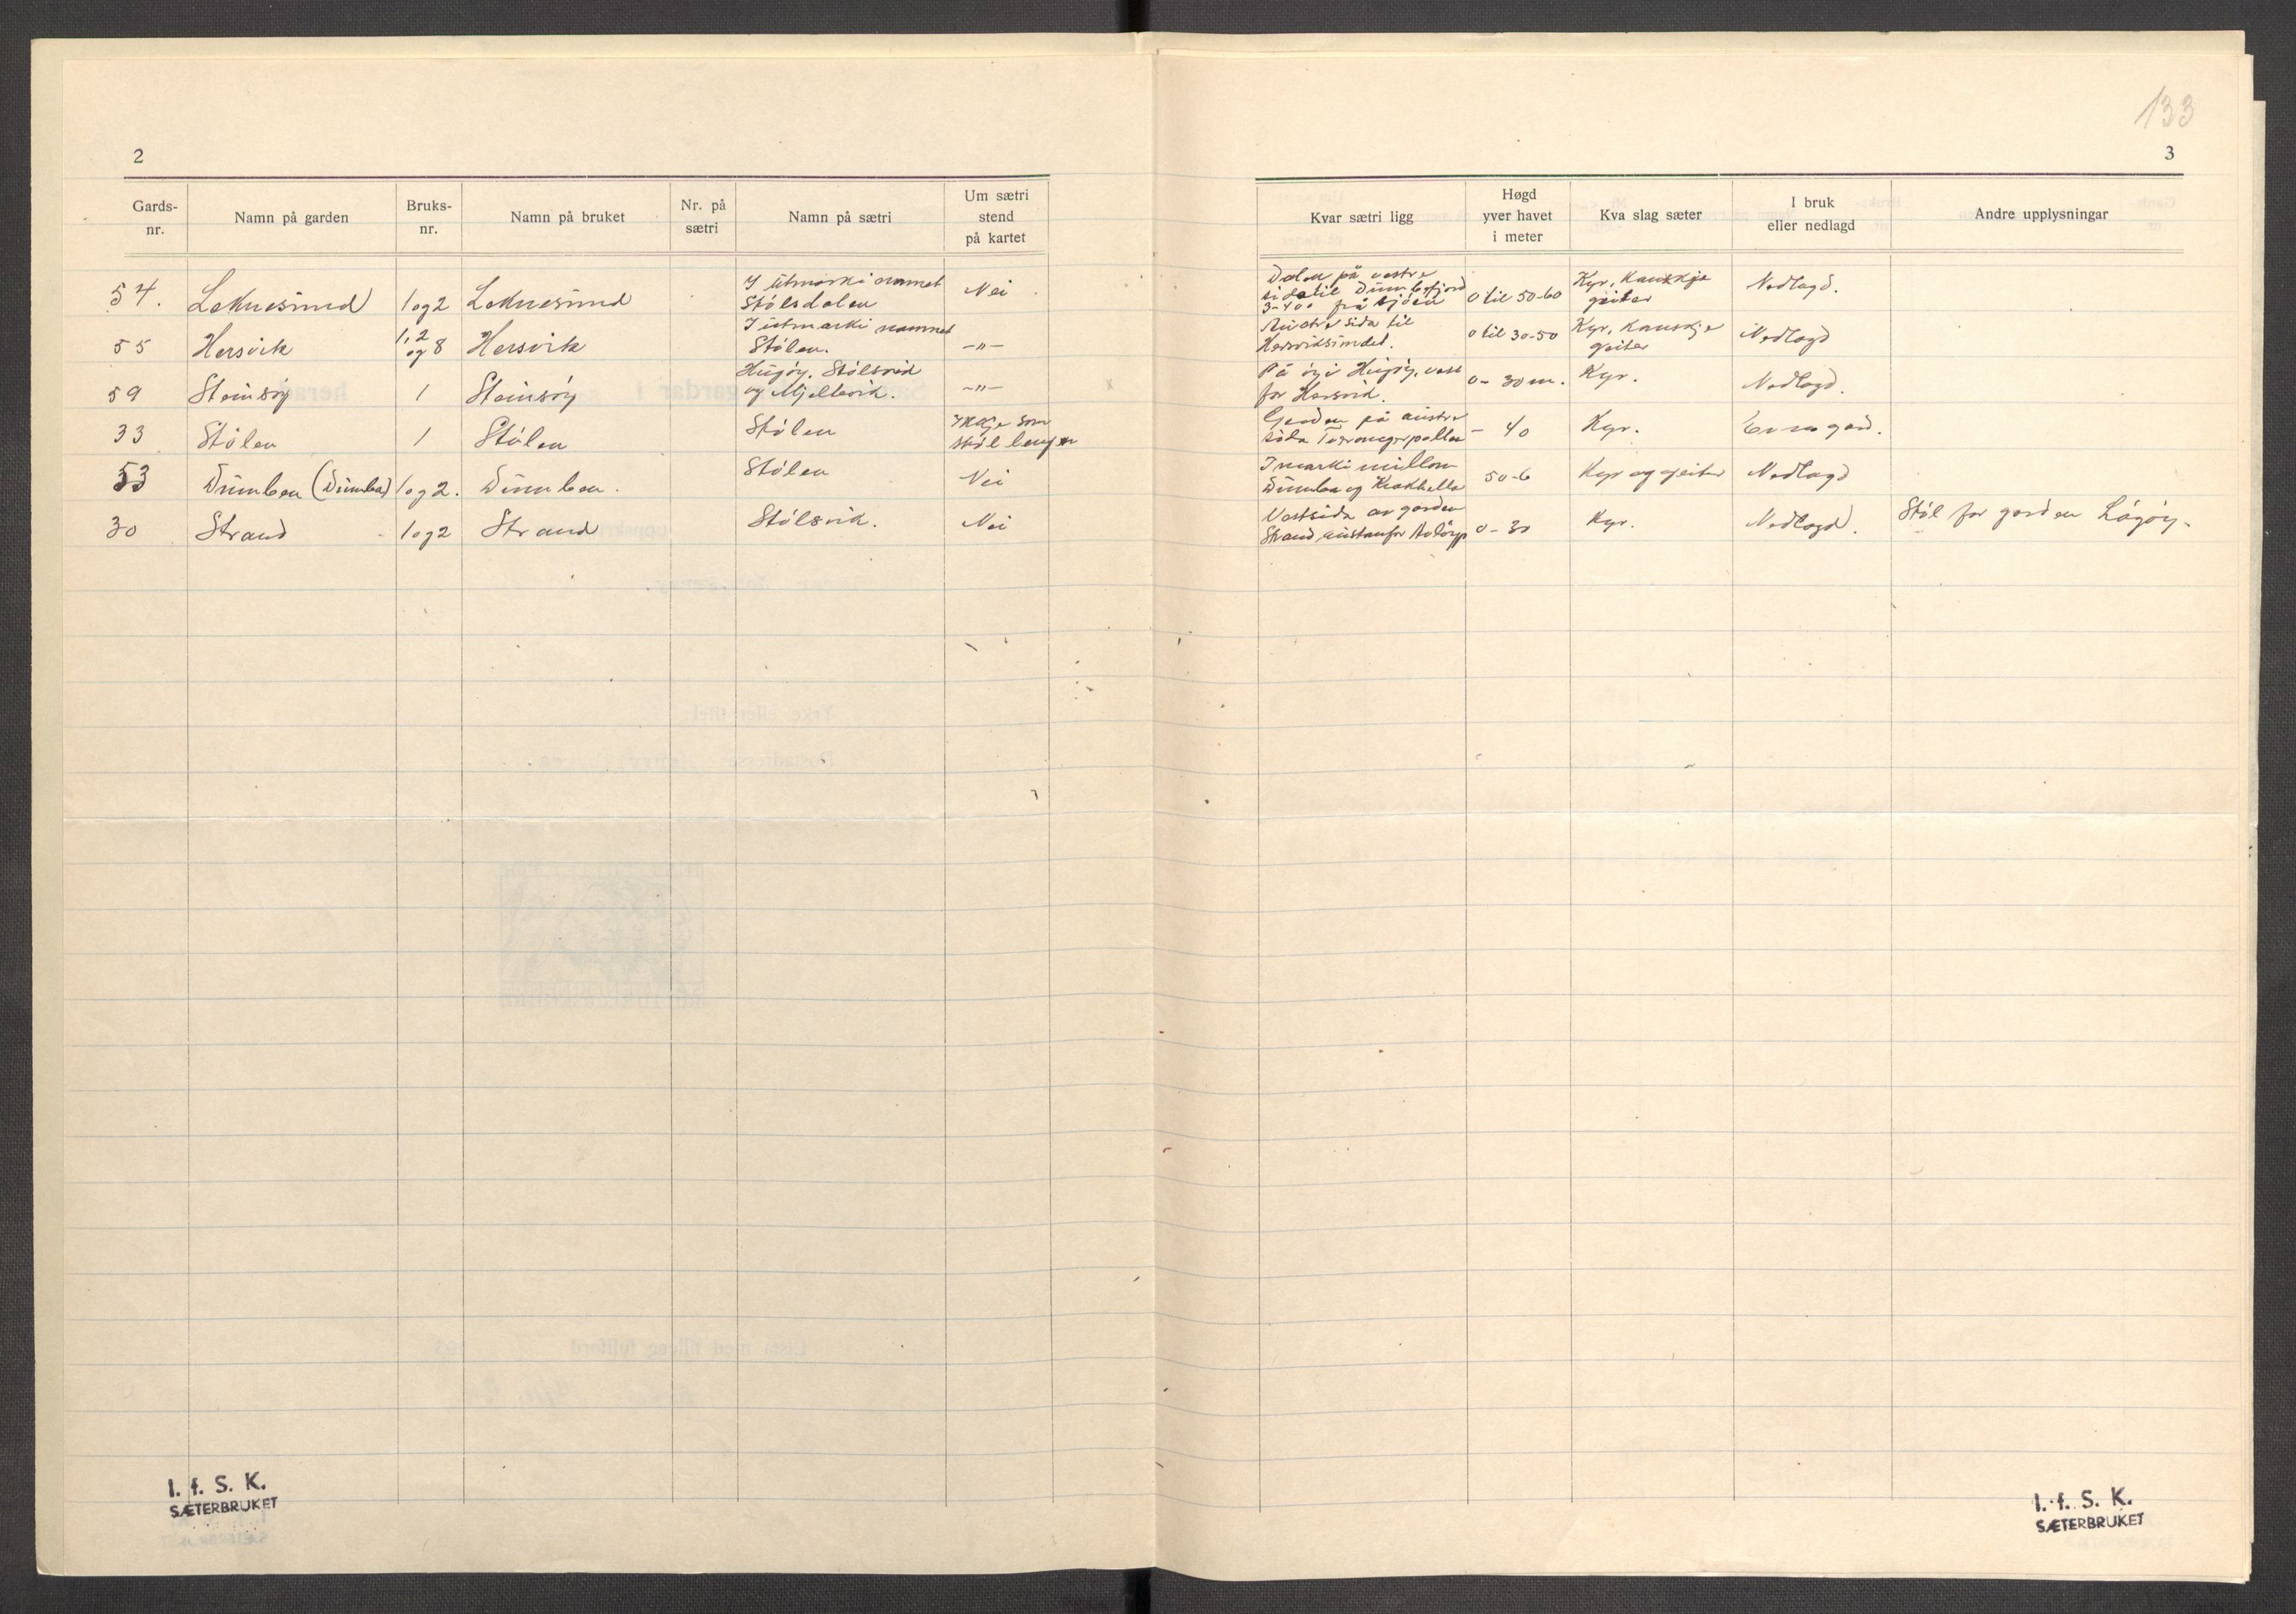 133
2
3
Gards-
nr.
Namn på garden
Bruks-
nr.
Namn på bruket
Nr. på
sætri
Namn på sætri
Um sætri
stend
på kartet
Kvar sætri ligg
Høgd
yver havet
i meter
Kva slag sæter
I bruk
eller nedlagd
Andre upplysningar
54. Leknesund 1 og 2 Leknesund
I utmarki namnet
Stølsdalen
Nei
Dalen på vestre
sida til Dumbefjord
3-400 frå sjøen
0 til 50-60
Kyr, kanskje
geiter
Nedlagd.
55 Hersvik
1, 2
og 8
Hersvik
I utmarki namnet
Stølen.
-"-
Austre sida til
Hersviksundet.
0 til 30-50
Kyr, kanskje
geiter
Nedlagd
59 Steinsøy 1 Steinsøy
Hugøy. Stølsvik
og Mjellevik.
-"-
På øyi Hugøy, vest
for Hersvik.
0 - 30 m.
Kyr.
Nedlagd.
33 Stølen 1 Stølen
Stølen
Ikkje som
støl lenger
Garden på austre
sida
- 40
Kyr.
Er no gard.
53 Dumben (Dumba) 1 og 2. Dumben.
Stølen
Nei
I marki millom
Dumba og Krakhella
50-6
Kyr og geiter
Nedlagd
30 Strand 1 og 2 Strand
Stølsvik.
Nei
Vestsida av garden
Strand austanfor
0 - 30
Kyr.
Nedlagd.
Støl for garden Lågøy.
I. f. S. K.
SÆTERBRUKET
I. f. S. K.
SÆTERBRUKET